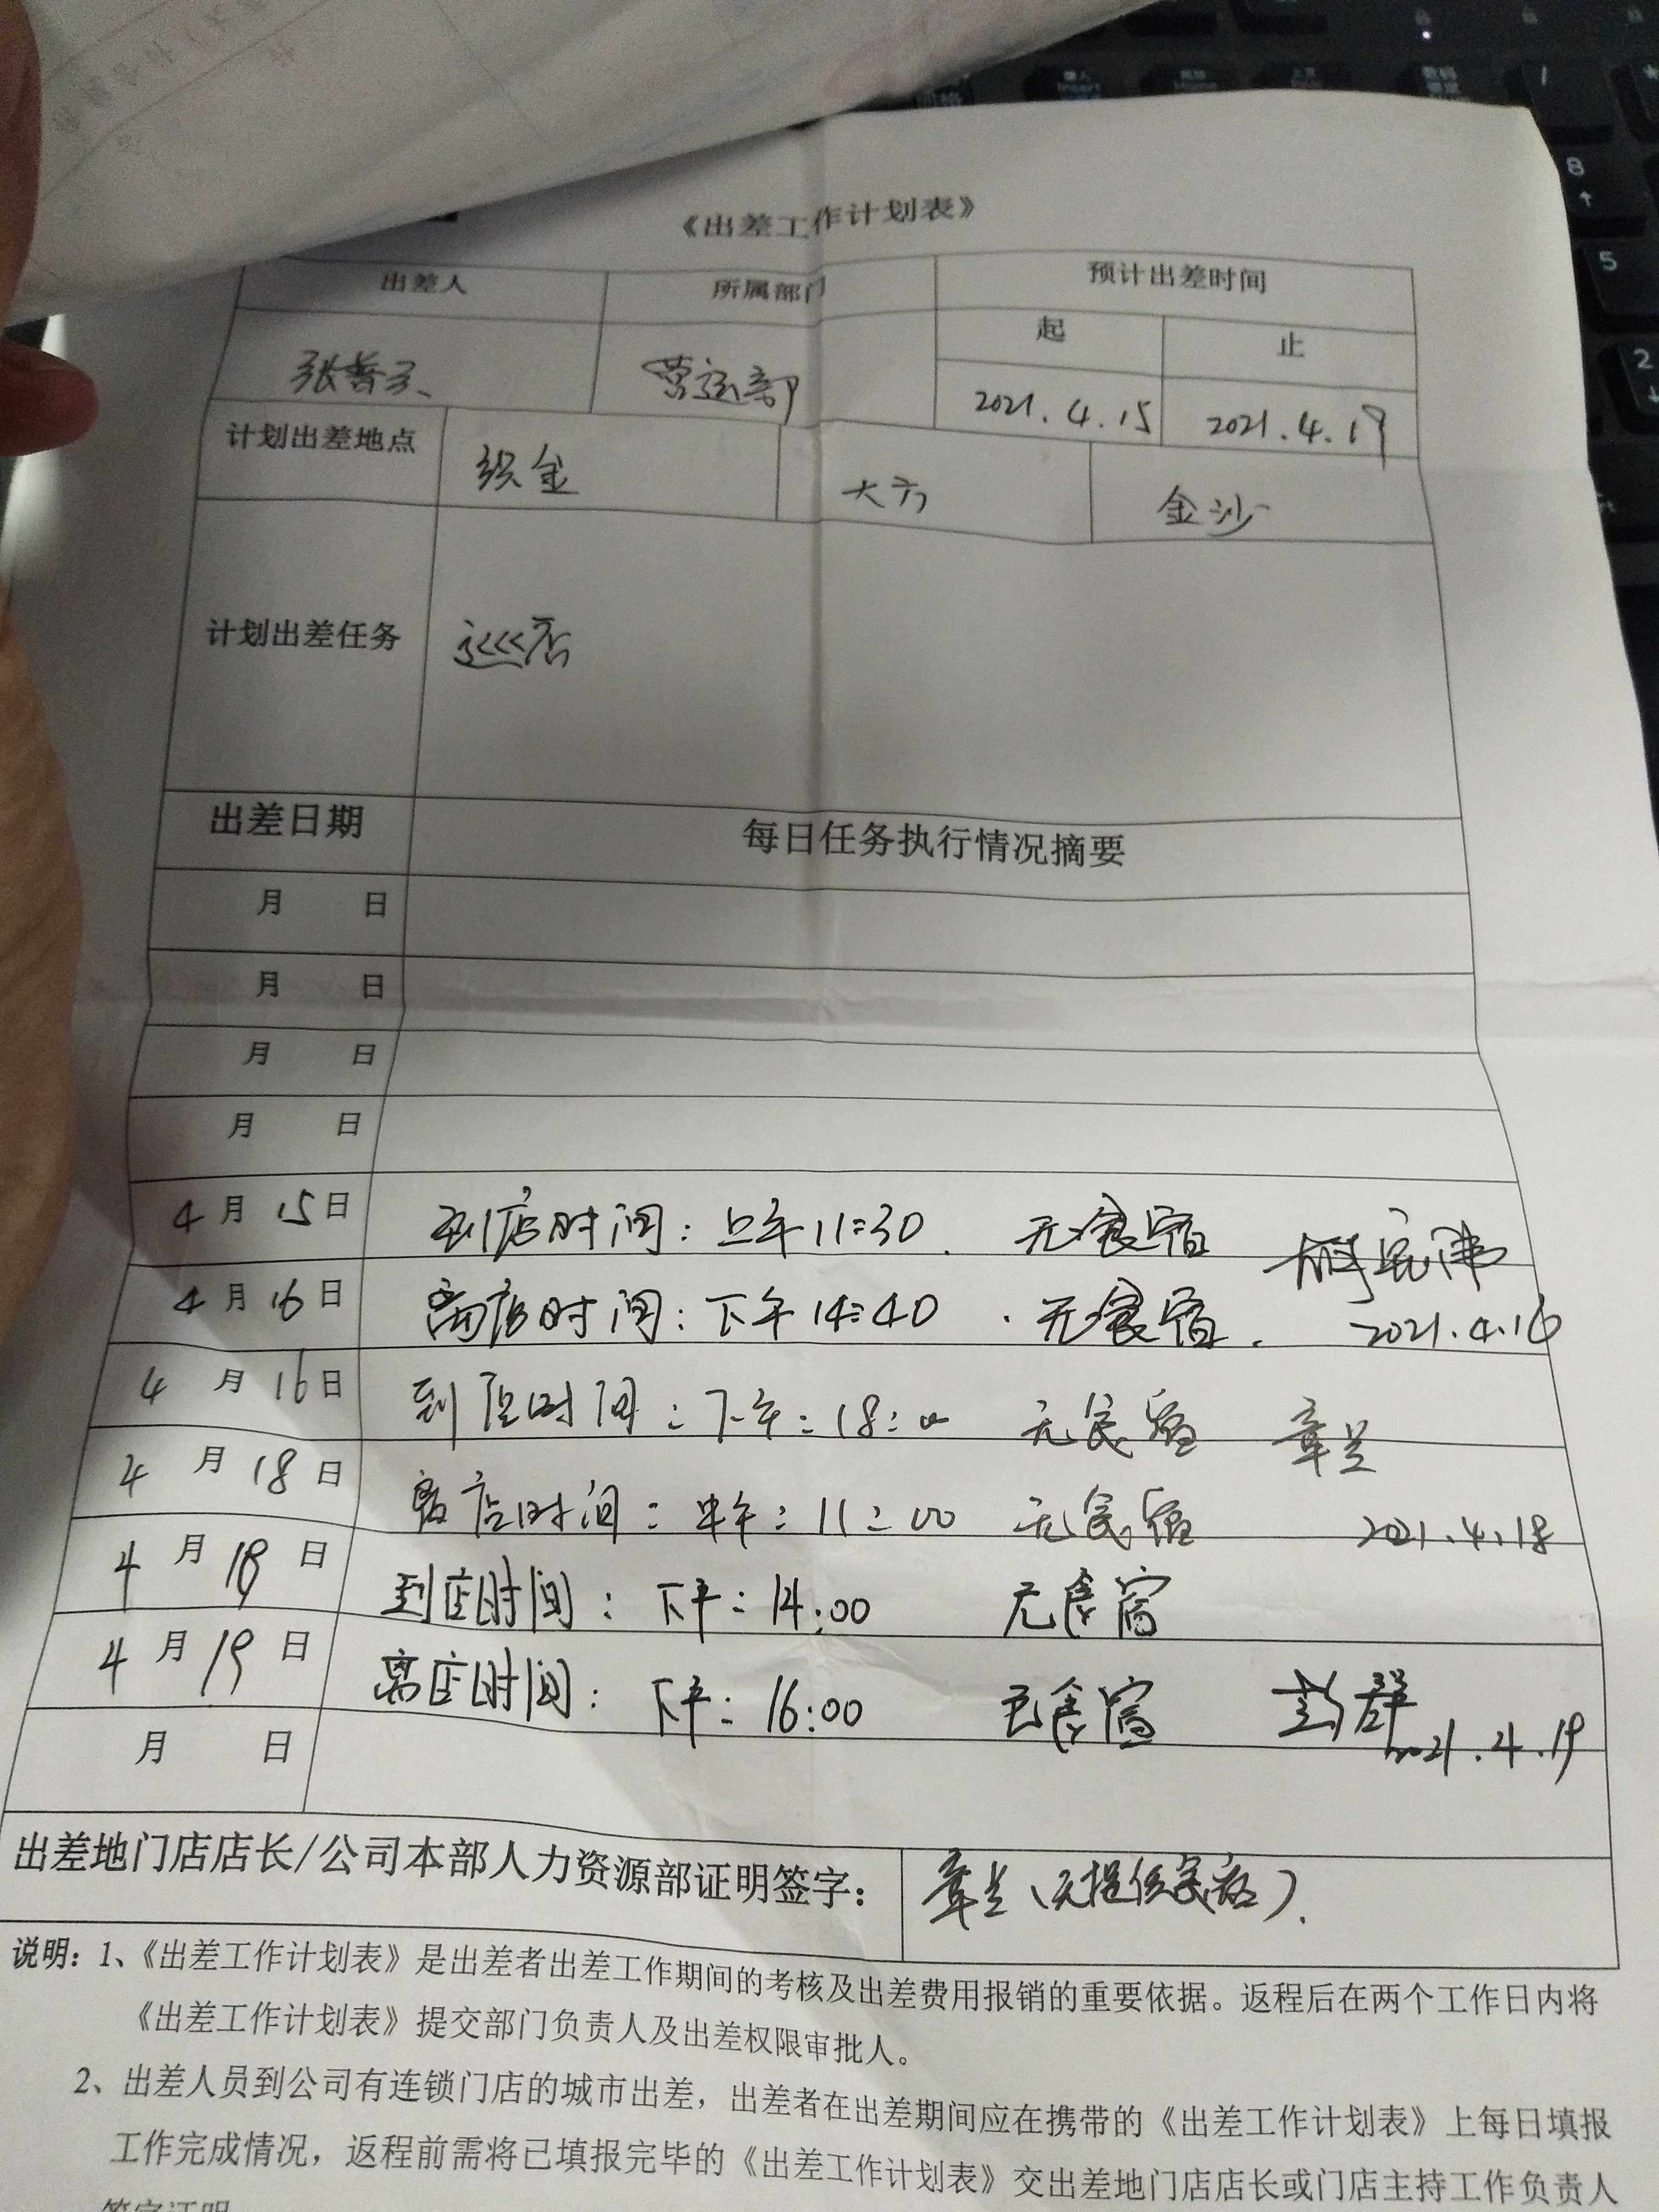 《出差工作计划表》
出差人 所属部门 预计出差时间
起 止
营运部 2021.4.15 2021.4.19
计划出差地点 织金 大方 金沙
计划出差任务 巡店
出差日期 每日任务执行情况摘要
月 日
月 日
月 日
月 日
4月15日 到店时间：上午11:30. 无食宿
4月16日 离店时间：下午14:40 . 无食宿. 2021.4.16
4月16日 到店时间：下午：18:00 无食宿
4月18日 离店时间：中午：11:00 无食宿 2021.4.18
4月18日 到店时间：下午：14:00 无食宿
4月19日 离店时间：下午：16:00 无食宿 2021.4.19
月 日
出差地门店店长/公司本部人力资源部证明签字：
说明：1、《出差工作计划表》是出差者出差工作期间的考核及出差费用报销的重要依据。返程后在两个工作日内将
《出差工作计划表》提交部门负责人及出差权限审批人。
2、出差人员到公司有连锁门店的城市出差，出差者在出差期间应在携带的《出差工作计划表》上每日填报
工作完成情况，返程前需将已填报完毕的《出差工作计划表》交出差地门店店长或门店主持工作负责人